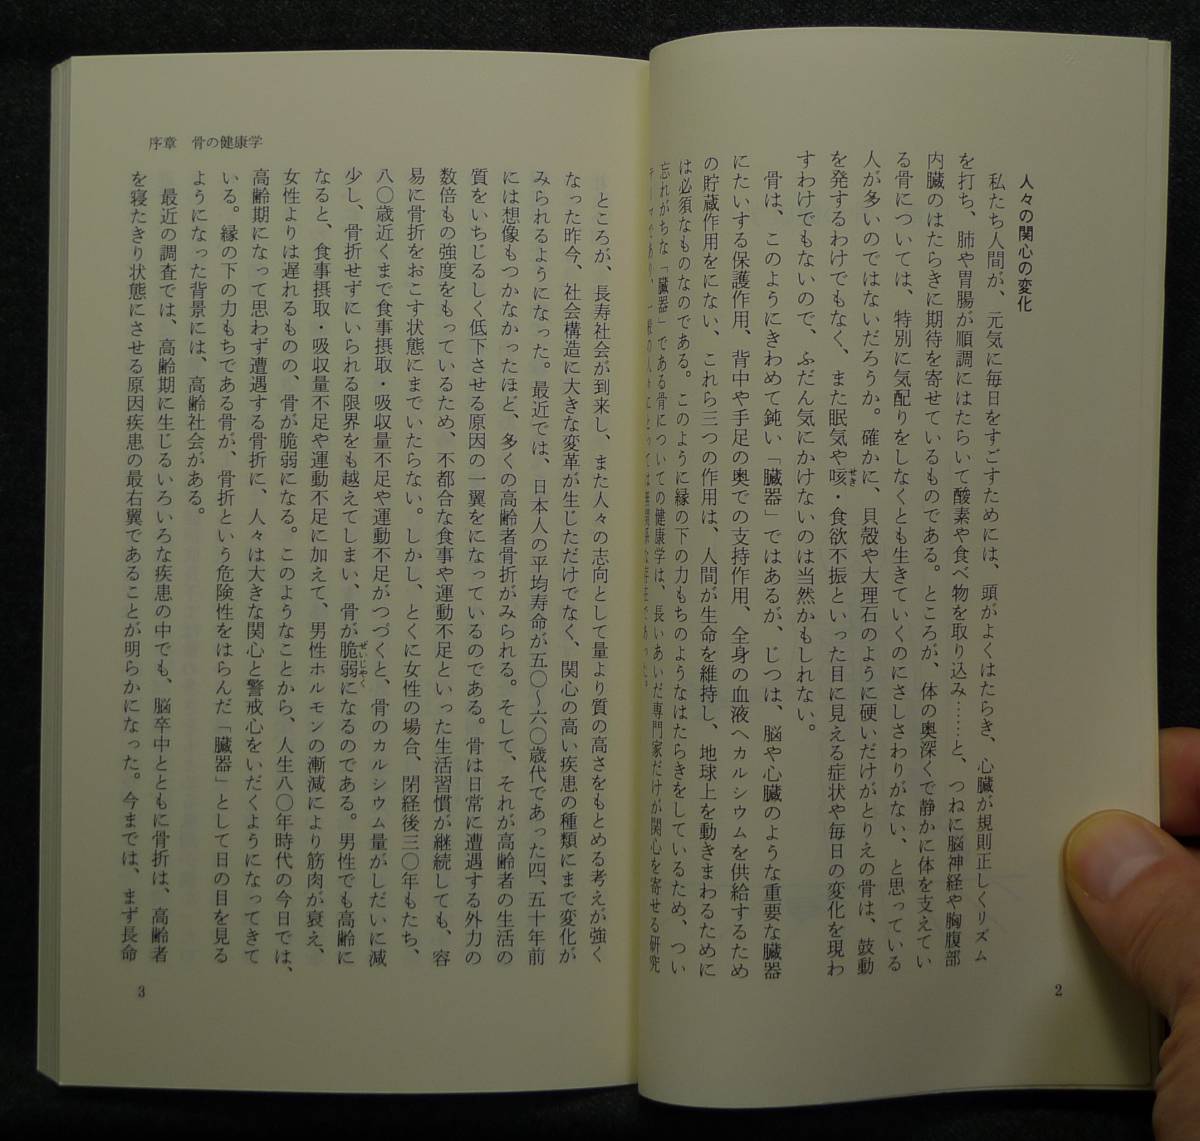 人々の関心の変化
私たち人間が、元気に毎日をすごすためには、頭がよくはたらき、心臓が規則正しくリズム
を打ち、肺や胃腸が順調にはたらいて酸素や食べ物を取り込み……と、つねに脳神経や胸腹部
内臓のはたらきに期待を寄せているものである。ところが、体の奥深くで静かに体を支えてい
る骨については、特別に気配りをしなくとも生きていくのにさしさわりがない、と思っている
人が多いのではないだろうか。確かに、貝殻や大理石のように硬いだけがとりえの骨は、鼓動
を発するわけでもなく、また眠気や咳・食欲不振といった目に見える症状や毎日の変化を現わ
せき
すわけでもないので、ふだん気にかけないのは当然かもしれない。
骨は、このようにきわめて鈍い「臓器」ではあるが、じつは、脳や心臓のような重要な臓器
にたいする保護作用、背中や手足の奥での支持作用、全身の血液へカルシウムを供給するため
の貯蔵作用をにない、これら三つの作用は、人間が生命を維持し、地球上を動きまわるために
は必須なものなのである。このように縁の下の力もちのようなはたらきをしているため、つい
忘れがちな「臓器」である骨についての健康学は、長いあいだ専門家だけが関心を寄せる研究
テーマであり、一般の人々にとっては無関係な存在であった。
2
序章 骨の健康学
ところが、長寿社会が到来し、また人々の志向として量より質の高さをもとめる考えが強く
なった昨今、社会構造に大きな変革が生じただけでなく、関心の高い疾患の種類にまで変化が
みられるようになった。最近では、日本人の平均寿命が五〇〜六〇歳代であった四、五十年前
には想像もつかなかったほど、多くの高齢者骨折がみられる。そして、それが高齢者の生活の
質をいちじるしく低下させる原因の一翼をになっているのである。骨は日常に遭遇する外力の
数倍もの強度をもっているため、不都合な食事や運動不足といった生活習慣が継続しても、容
易に骨折をおこす状態にまでいたらない。しかし、とくに女性の場合、閉経後三〇年もたち、
八〇歳近くまで食事摂取・吸収量不足や運動不足がつづくと、骨のカルシウム量がしだいに減
少し、骨折せずにいられる限界をも越えてしまい、骨が脆弱になるのである。男性でも高齢に
ぜいじゃく
なると、食事摂取・吸収量不足や運動不足に加えて、男性ホルモンの漸減により筋肉が衰え、
女性よりは遅れるものの、骨が脆弱になる。このようなことから、人生八〇年時代の今日では、
高齢期になって思わず遭遇する骨折に、人々は大きな関心と警戒心をいだくようになってきて
いる。縁の下の力もちである骨が、骨折という危険性をはらんだ「臓器」として日の目を見る
ようになった背景には、高齢社会がある。
最近の調査では、高齢期に生じるいろいろな疾患の中でも、脳卒中とともに骨折は、高齢者
を寝たきり状態にさせる原因疾患の最右翼であることが明らかになった。今までは、まず長命
3